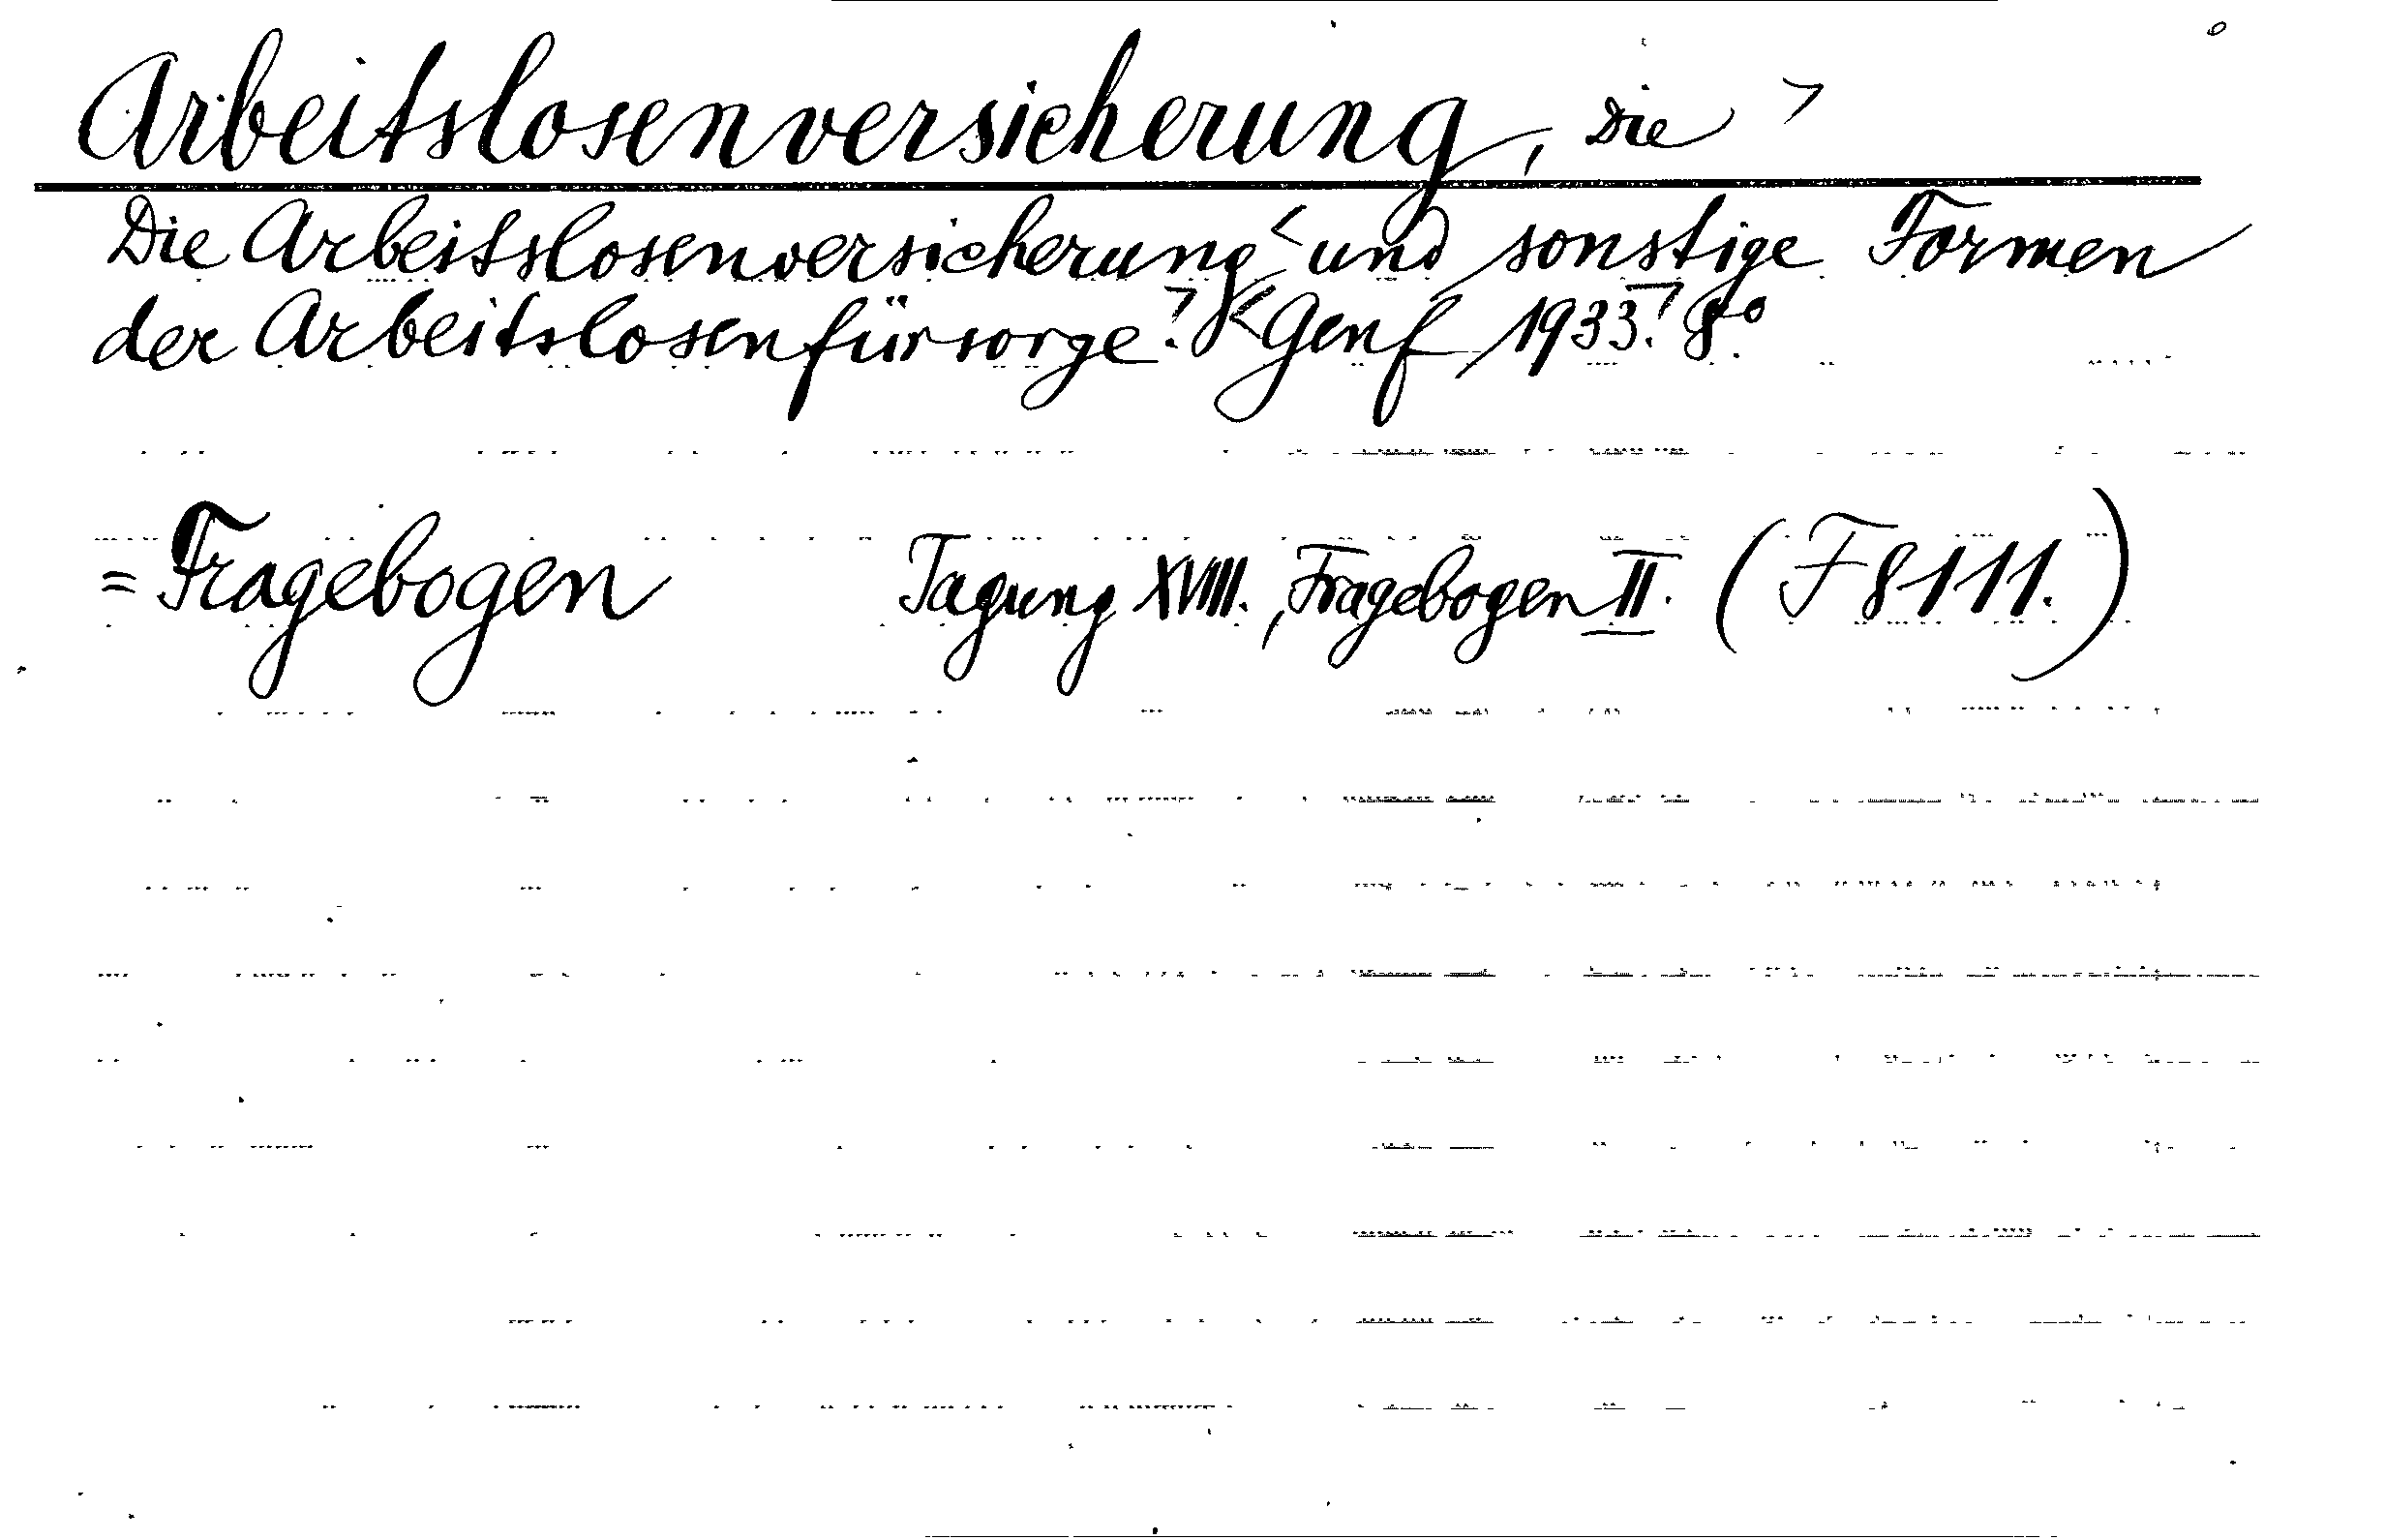 Arbeitslosenversicherung, Die >
Die Arbeitslosenversicherung < und sonstige Formen
der Arbeitslosenfürsorge. > < Genf 1933. > 8°.
= Fragebogen Tagung XVIII., Fragebogen II. (F 8111.)